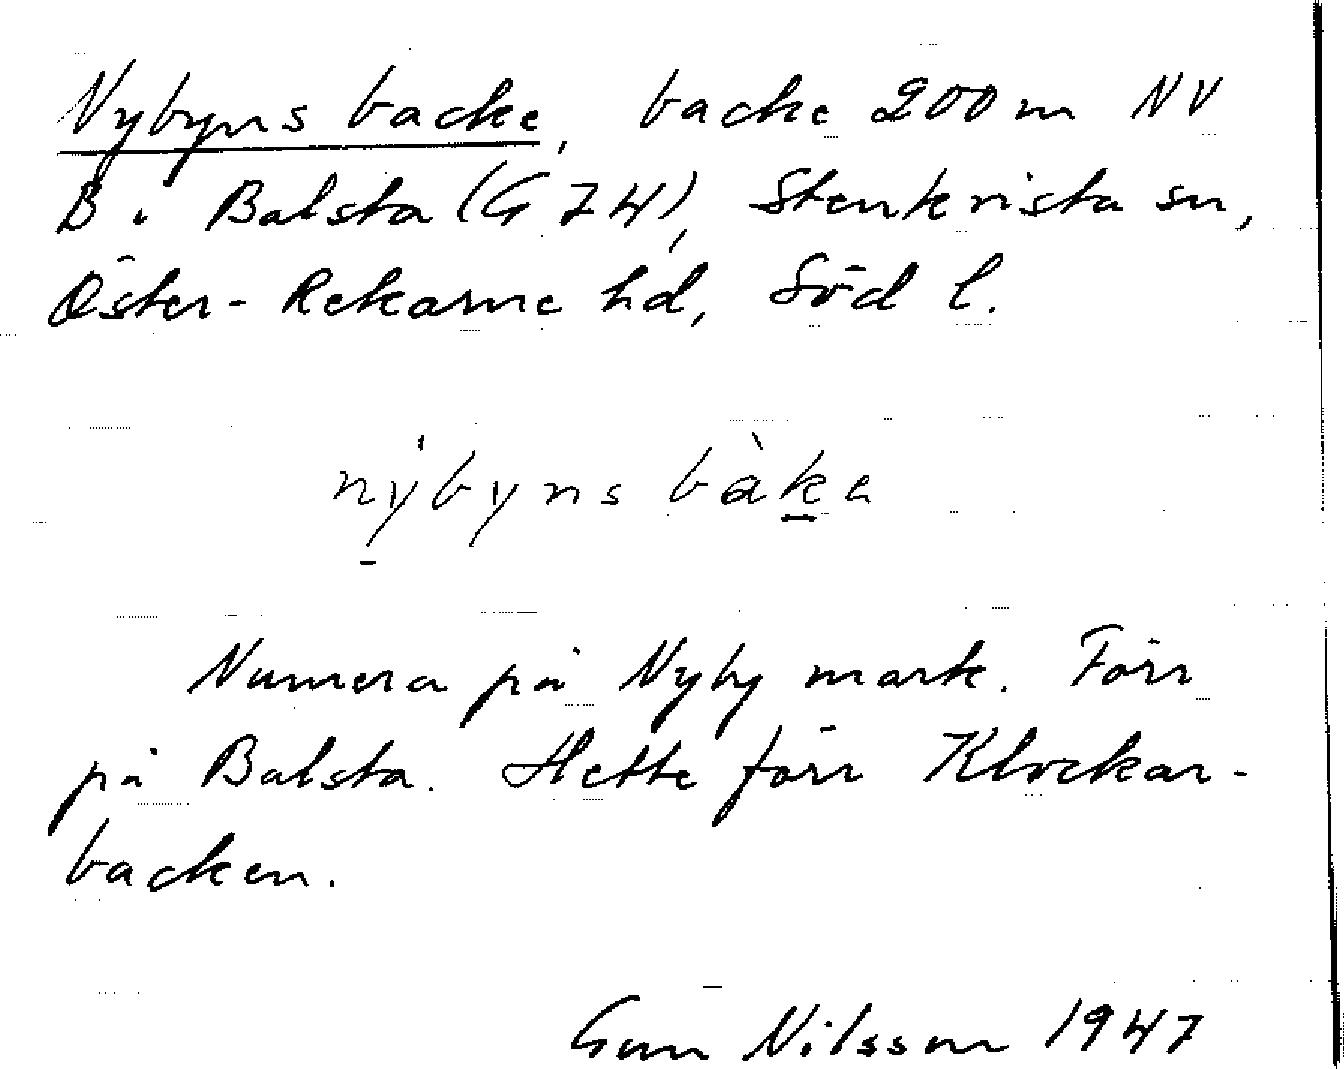 Nybyns backe, backe 200 m NV
B i Balsta (G 74), Stenkvista sn,
Öster-Rekarne hd, Söd l.
nýbyns bàke
Numera på Nyby mark. Förr
på Balsta. Hette förr Klockar-
backen.
Gun Nilsson 1947